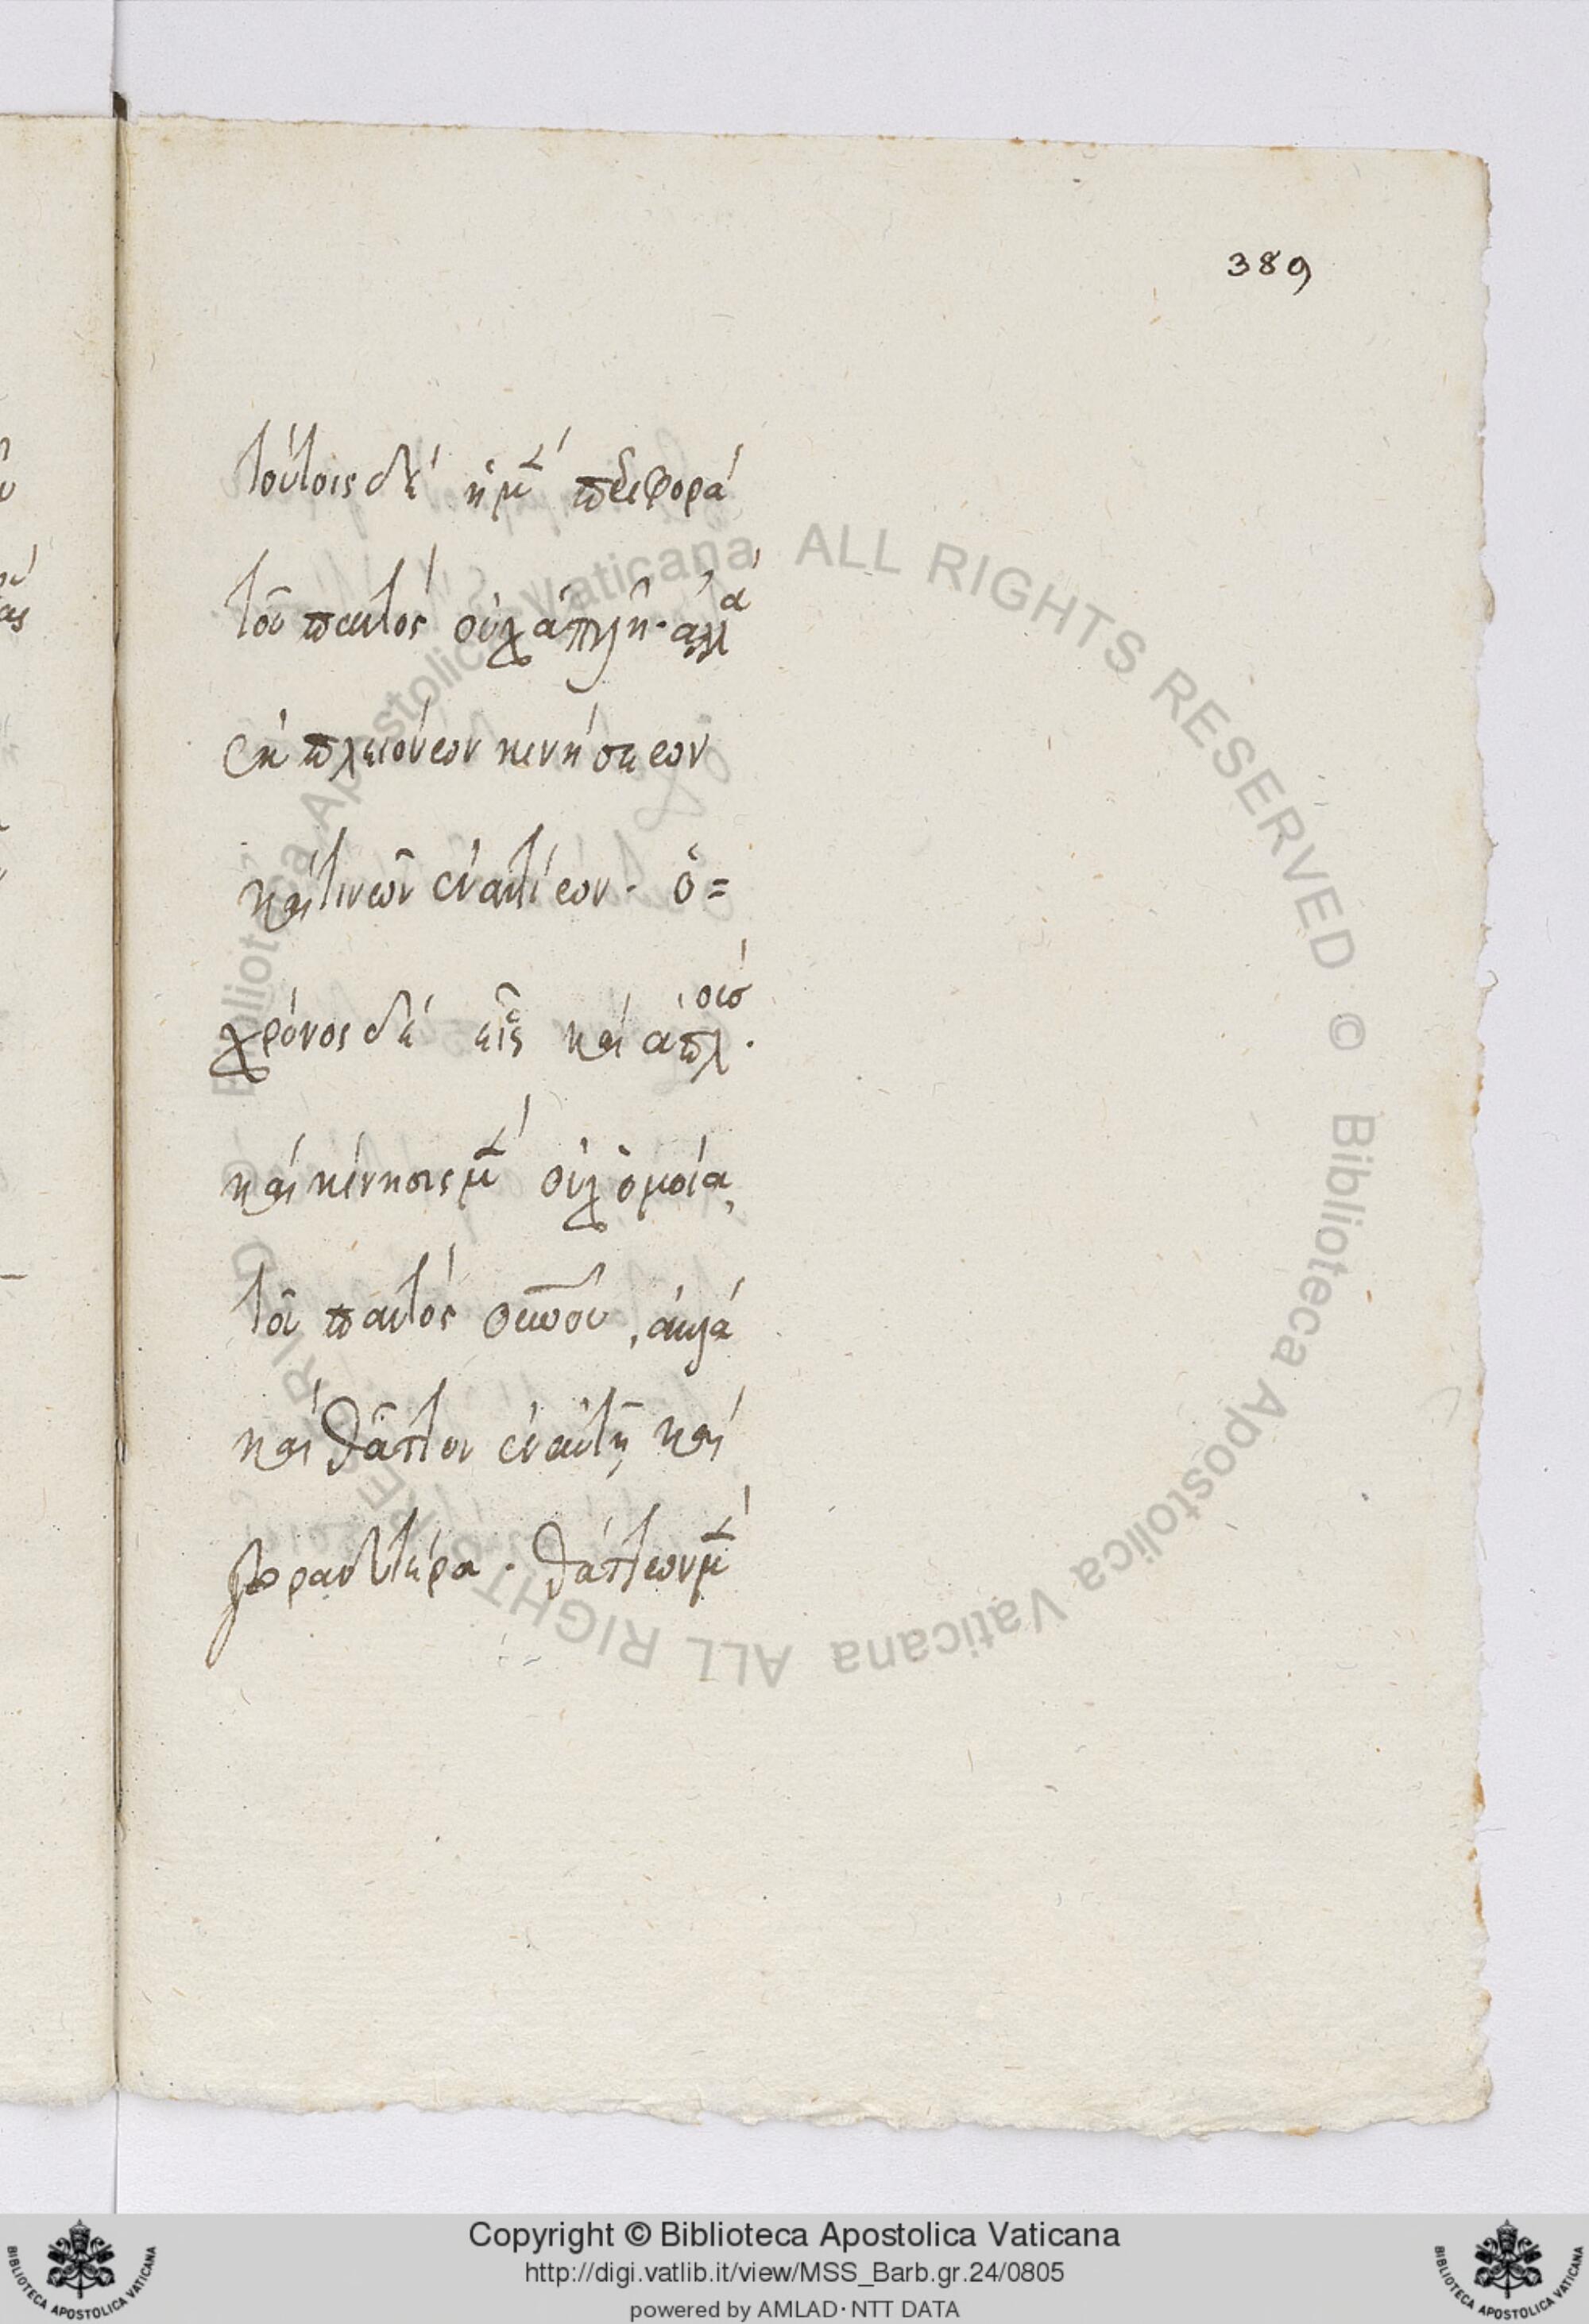 389
τούτοις δέ ἡ μὲν περιφορά
τοῦ παντός οὐχ ἁπλῆ· ἀλλά
ἐκ πλειόνων κινήσεων
καί τινων ἐναντίων· ὁ=
χρόνος δέ εἷς καί ἁπλοῦς·
καί κίνησις μὲν οὐχ ὁμοία,
τοῦ παντός , ἀλλά
καί θᾶττον ἐν αὐτῇ καί
βραδυτέρα· θάττων μὲν
© Biblioteca Apostolica Vaticana ALL RIGHTS RESERVED © Biblioteca Apostolica Vaticana ALL RIGHTS RESERVED
Copyright © Biblioteca Apostolica Vaticana
http://digi.vatlib.it/view/MSS_Barb.gr.24/0805
powered by AMLAD · NTT DATA
BIBLIOTECA APOSTOLICA VATICANA
BIBLIOTECA APOSTOLICA VATICANA